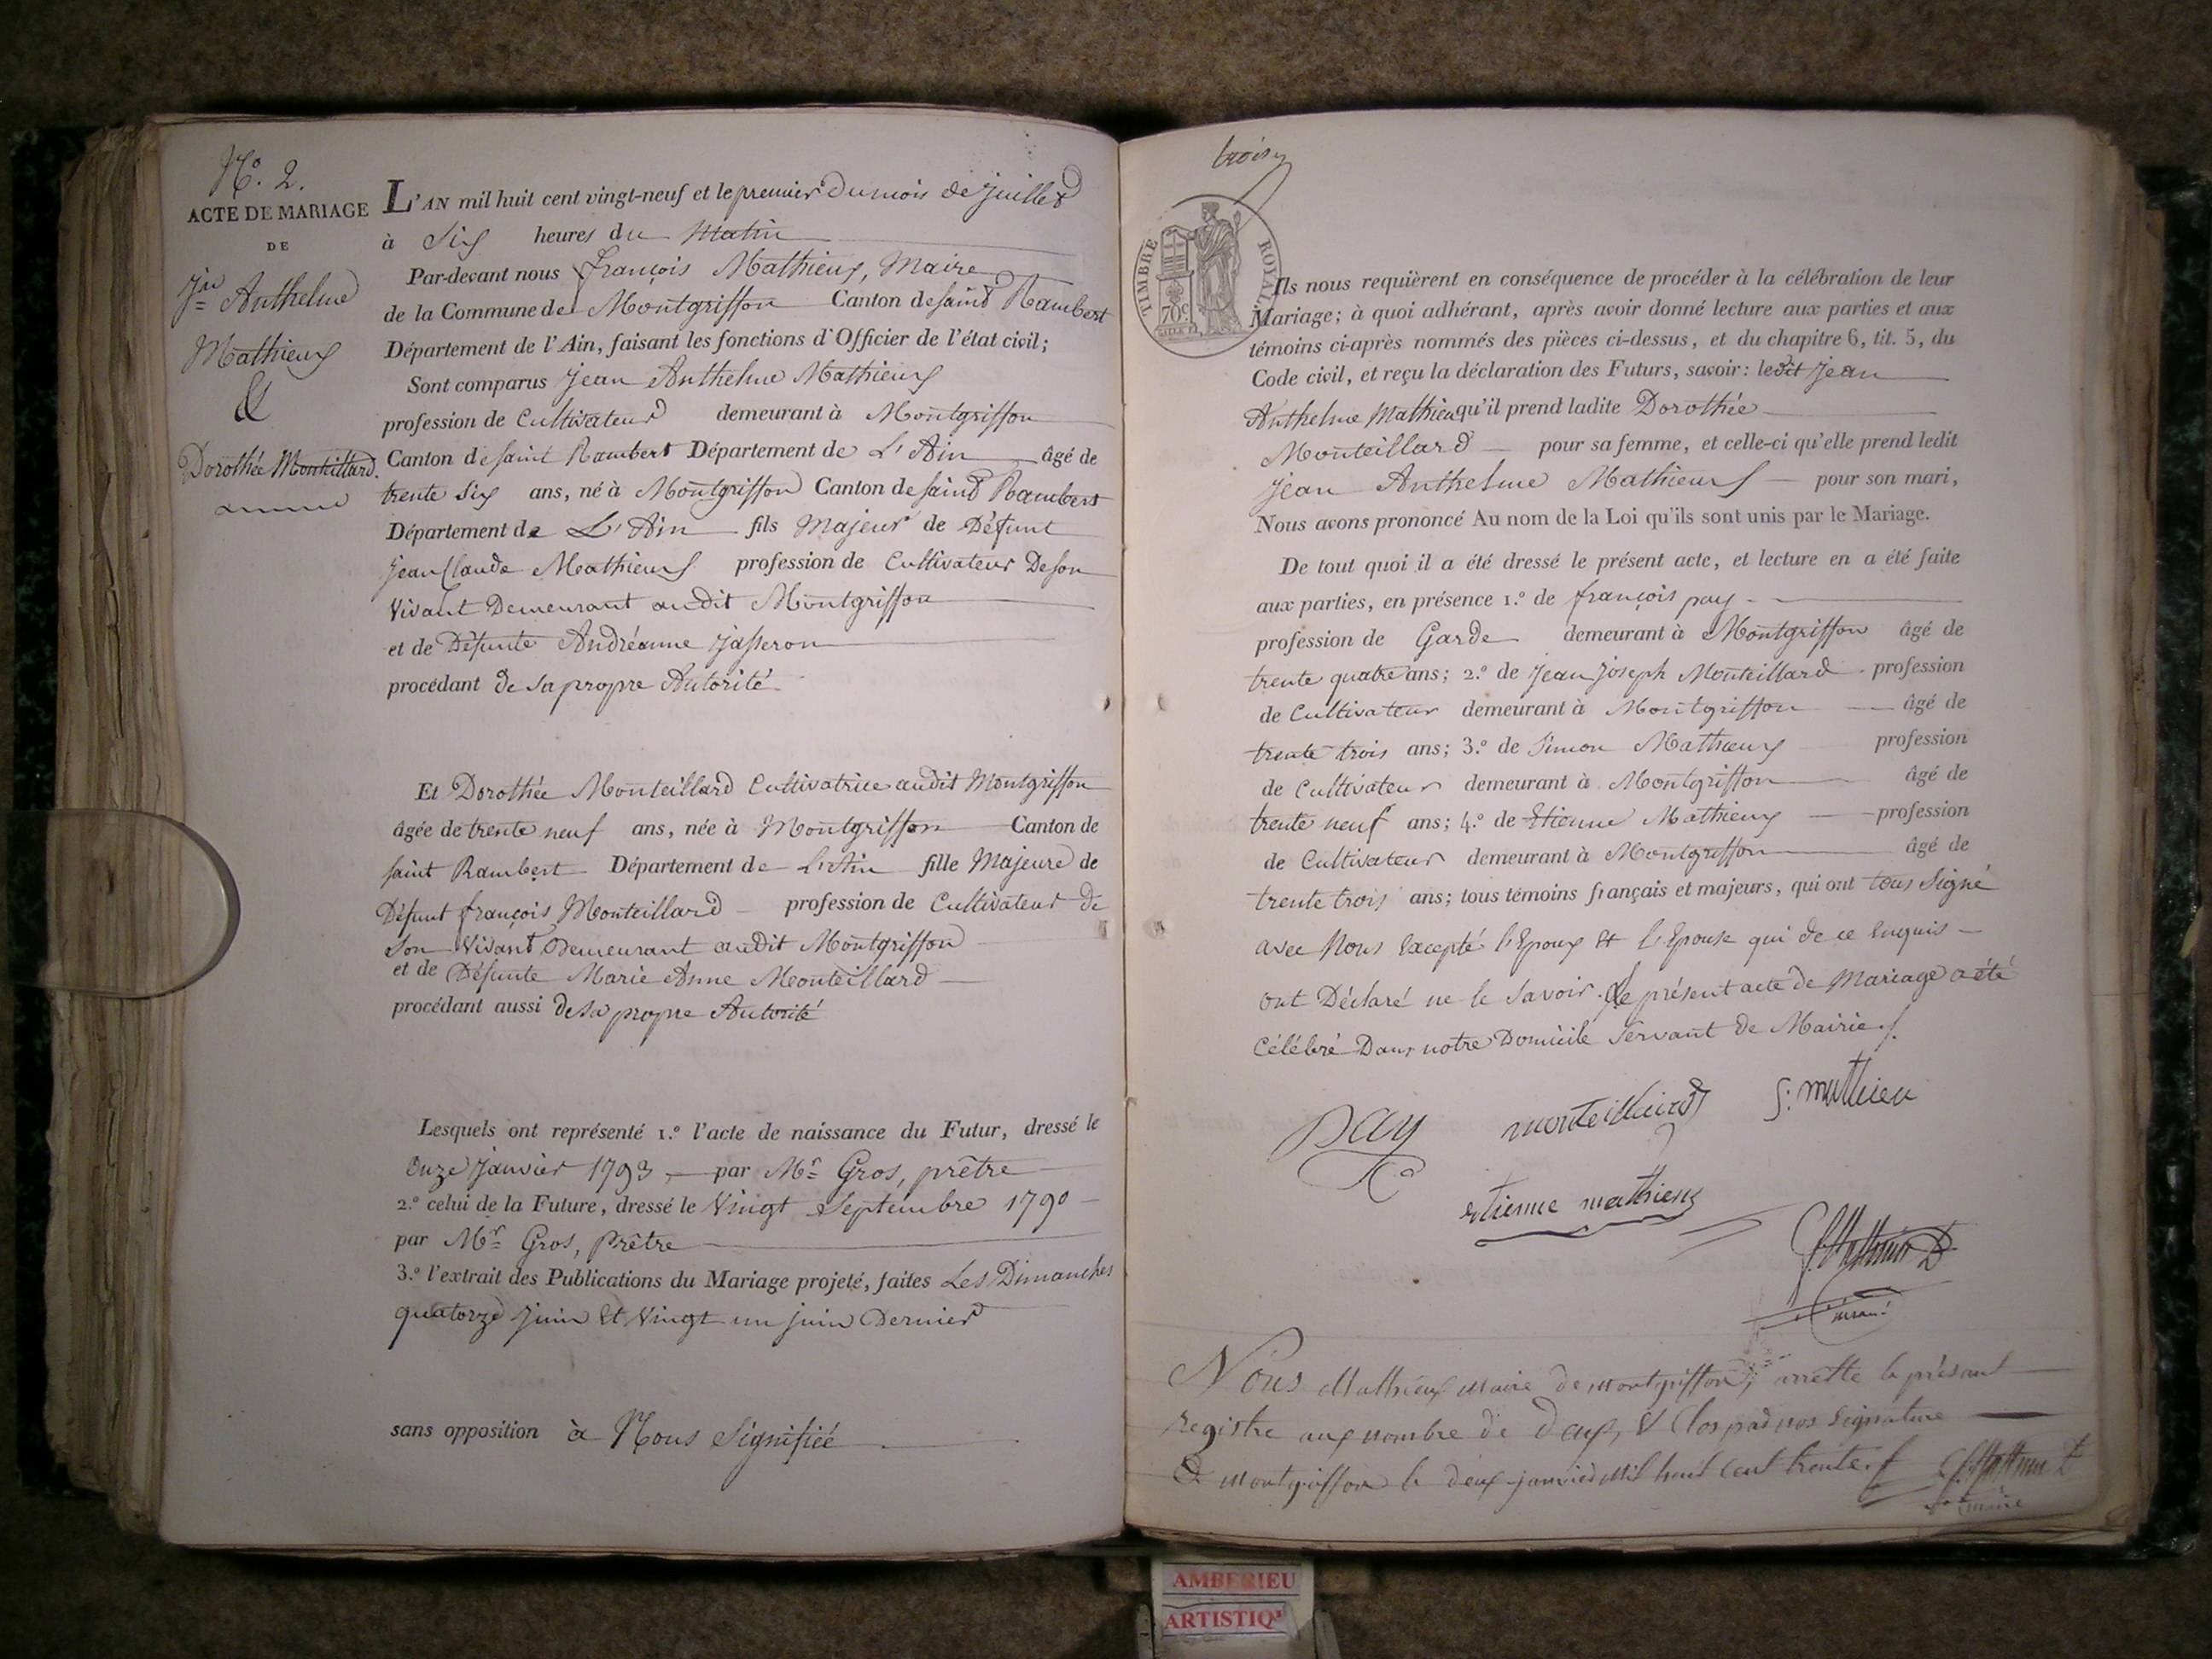 N.o 2.
ACTE DE MARIAGE
DE
Jn Anthelme
Mathieux
&
Dorothée Monteillard.
L'AN mil huit cent vingt-neuf et le premier du mois de juillet
à Six heures du Matin
Par-devant nous françois Mathieux, Maire
de la Commune de Montgriffon Canton de saint Rambert
Département de l'Ain, faisant les fonctions d'Officier de l'état civil;
Sont comparus jean Anthelme Mathieux
profession de Cultivateur demeurant à Montgriffon
Canton de saint Rambert Département de L'Ain âgé de
trente six ans, né à Montgriffon Canton de saint Rambert
Département de L'Ain fils Majeur de Défunt
jean Claude Mathieux profession de Cultivateur De son
Vivant Demeurant audit Montgriffon
et de Défunte Andréanne jasseron
procédant de sa propre Autorité
Et Dorothée Monteillard Cultivatrice audit Montgriffon
âgée de trente neuf ans, née à Montgriffon Canton de
saint Rambert Département de L'Ain fille Majeure de
Défunt françois Monteillard profession de Cultivateur de
son Vivant Demeurant audit Montgriffon
et de Défunte Marie Anne Monteillard
procédant aussi de sa propre Autorité
Lesquels ont représenté 1.o l'acte de naissance du Futur, dressé le
Onze janvier 1793 par Mr Gros, prêtre
2.o celui de la Future, dressé le Vingt Septembre 1790
par Mr Gros, Prêtre
3.o l'extrait des Publications du Mariage projeté, faites Les Dimanches
quatorze juin et Vingt un juin Dernier
sans opposition à Nous Signifiée
trois
TIMBRE ROYAL
70c
Ils nous requièrent en conséquence de procéder à la célébration de leur
Mariage; à quoi adhérant, après avoir donné lecture aux parties et aux
témoins ci-après nommés des pièces ci-dessus, et du chapitre 6, tit. 5, du
Code civil, et reçu la déclaration des Futurs, savoir: ledit jean
Anthelme Mathieux qu'il prend ladite Dorothée
Monteillard pour sa femme, et celle-ci qu'elle prend ledit
jean Anthelme Mathieux pour son mari,
Nous avons prononcé Au nom de la Loi qu'ils sont unis par le Mariage.
De tout quoi il a été dressé le présent acte, et lecture en a été faite
aux parties, en présence 1.o de françois pay
profession de Garde demeurant à Montgriffon âgé de
trente quatre ans; 2.o de jean joseph Monteillard profession
de Cultivateur demeurant à Montgriffon âgé de
trente trois ans; 3.o de Simon Mathieux profession
de Cultivateur demeurant à Montgriffon âgé de
trente neuf ans; 4.o de Etienne Mathieux profession
de Cultivateur demeurant à Montgriffon âgé de
trente trois ans; tous témoins français et majeurs, qui ont tous Signé
avec Nous Excepté l'Epoux et l'Epouse qui de ce Enquis
ont Déclaré ne le Savoir. Le présent acte de Mariage a été
Célébré Dans notre Domicile Servant de Mairie./.
pay monteillard S: mathieu
etienne mathieux
Nous Mathieux Maire de Montgriffon, arrette le présant
registre aux nombre de deux, & Clos par nos Signature
a Montgriffon le deux janvier Mil huit Cent trente.
maire
AMBERIEU
ARTISTIQ'